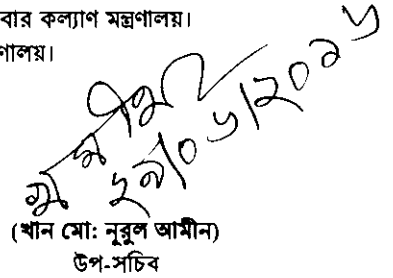 বার কল্যাণ মন্ত্রণালয়।
ণালয়।
২৯/০৬/২০১৬
(খান মো: নূরুল আমীন)
উপ-সচিব